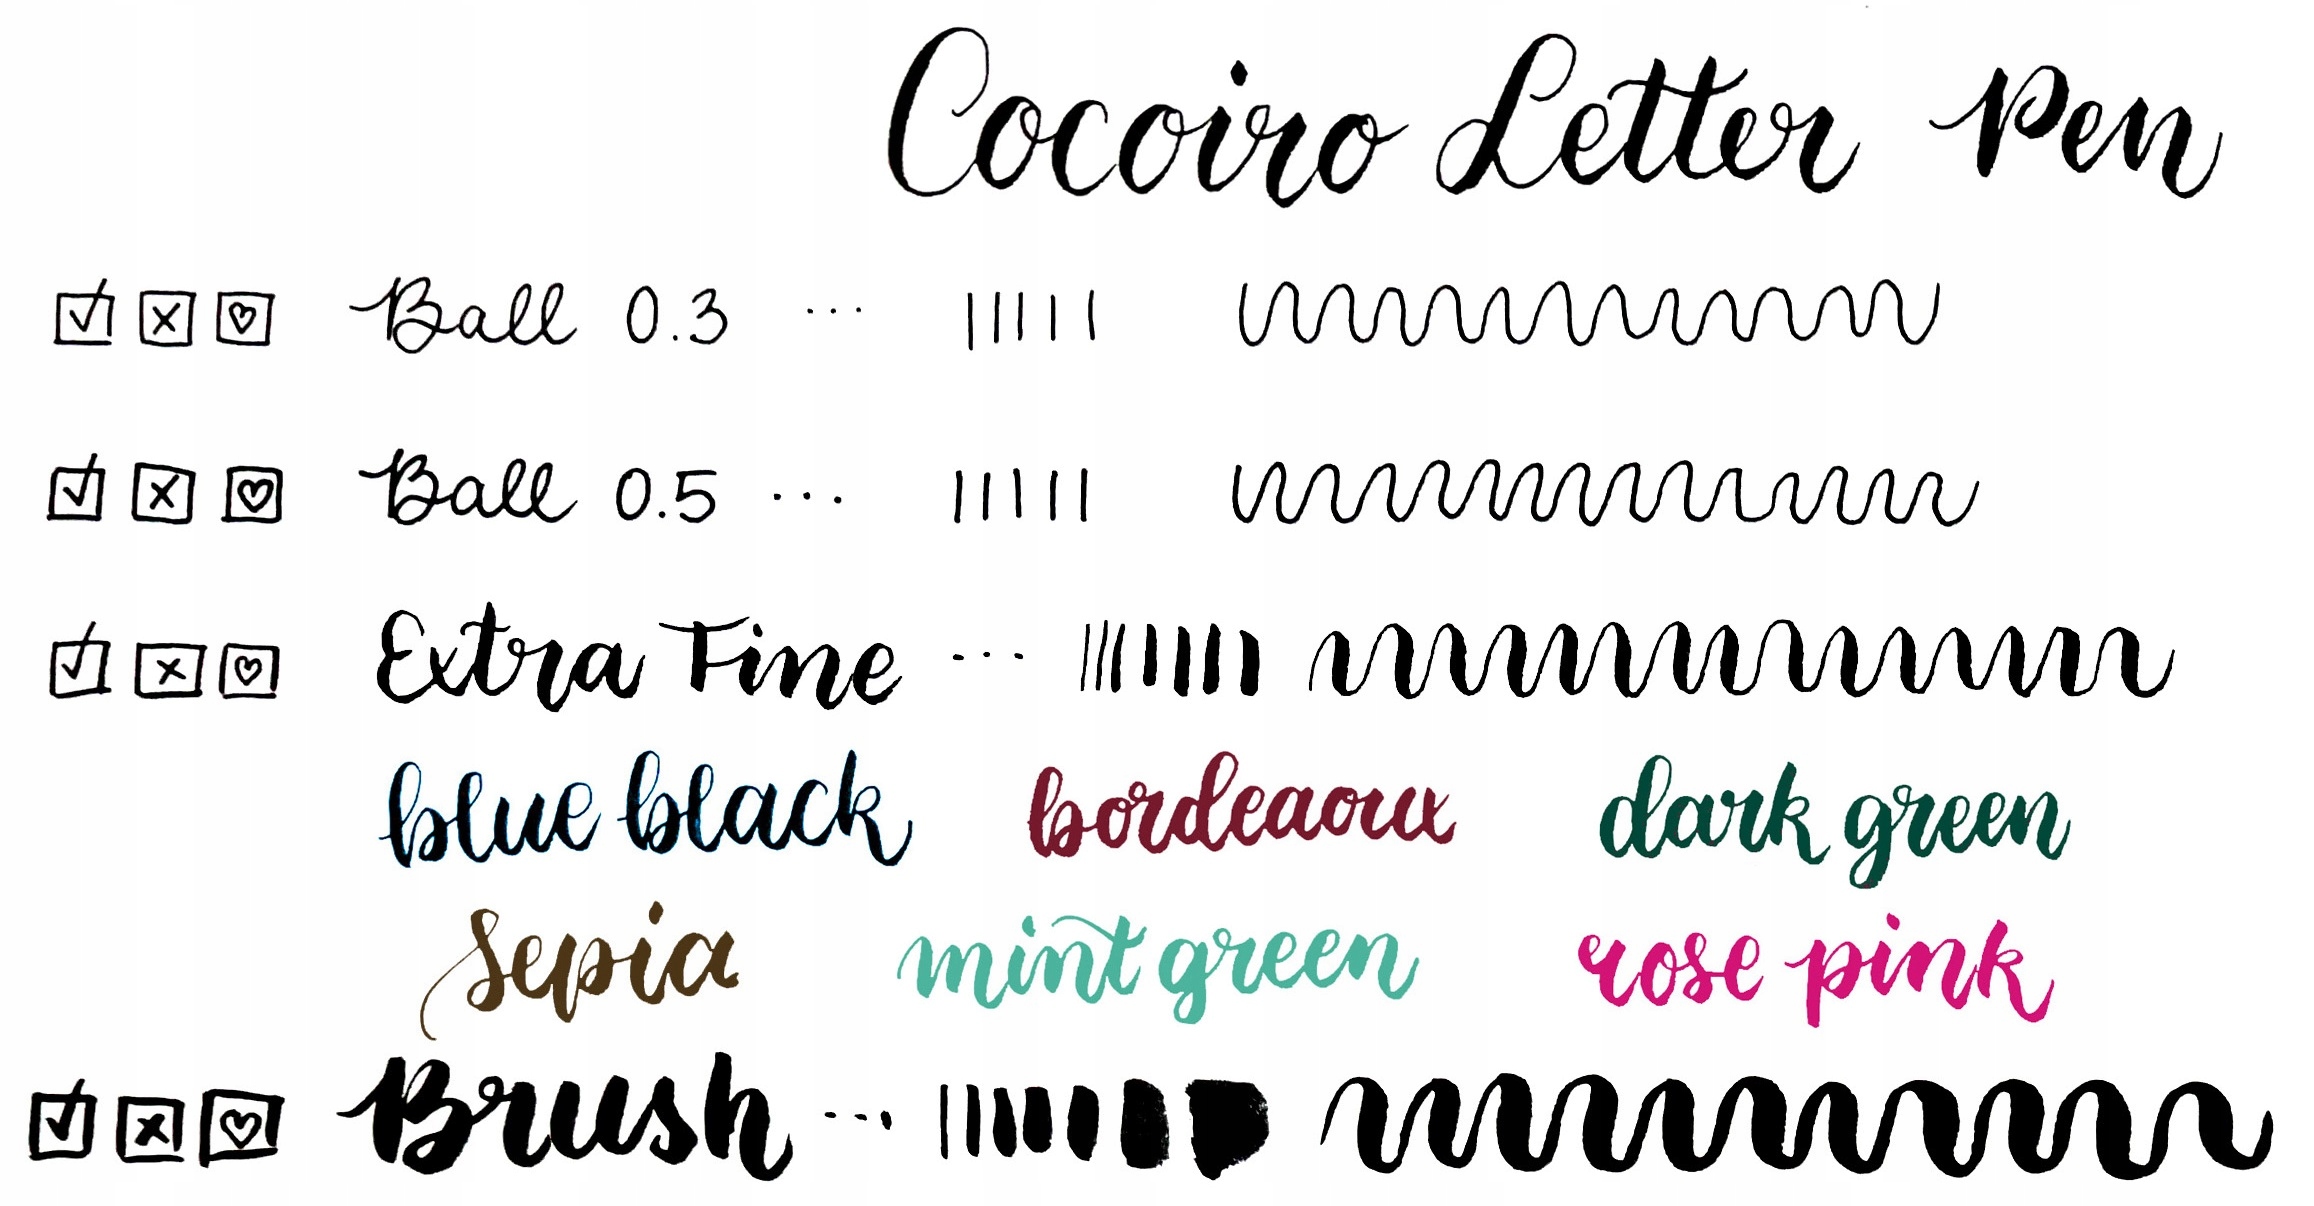 Cocoiro Letter Pen
Ball 0.3 ...
Ball 0.5 ...
Extra Fine ...
blue black bordeaoux dark green
sepia mint green rose pink
Brush ...